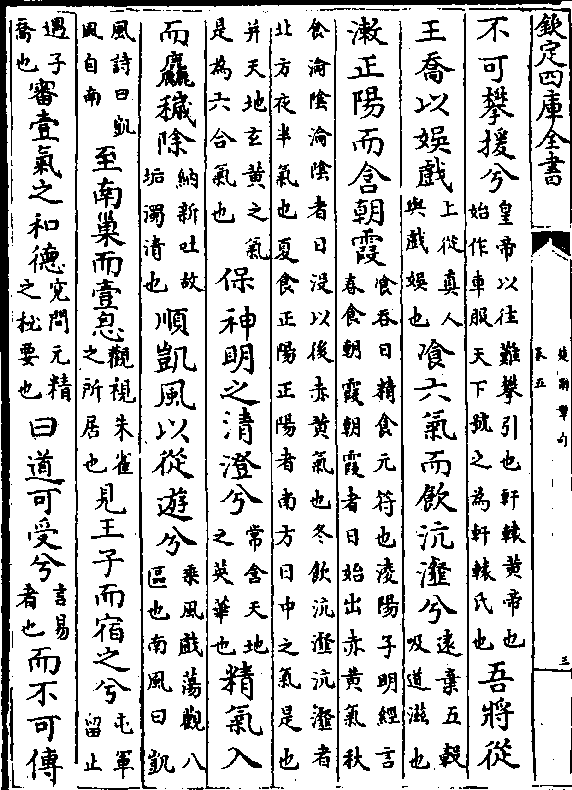 欽定四庫全書
楚辭章句
卷五
三
不可攀援兮皇帝以往難攀引也軒轅黃帝也始作車服天下號之為軒轅氏也吾將從
王喬以娛戲上從真人與戲娛也飡六氣而飲沆瀣兮遠棄五穀吸道滋也
漱正陽而含朝霞飡吞日精食元符也淩陽子明經言春食朝霞朝霞者日始出赤黃氣秋
食淪陰淪陰者日沒以後赤黃氣也冬飲沆瀣沆瀣者北方夜半氣也夏食正陽正陽者南方日中之氣是也
并天地玄黃之氣是為六合氣也保神明之清澄兮常含天地之英華也精氣入
而麤穢除納新吐故垢濁清也順凱風以從遊兮乘風戲蕩觀八區也南風曰凱
風詩曰凱風自南至南巢而壹息觀視朱雀之所居也見王子而宿之兮屯軍留止
遇子喬也審壹氣之和德究問元精之秘要也曰道可受兮言易者也而不可傳